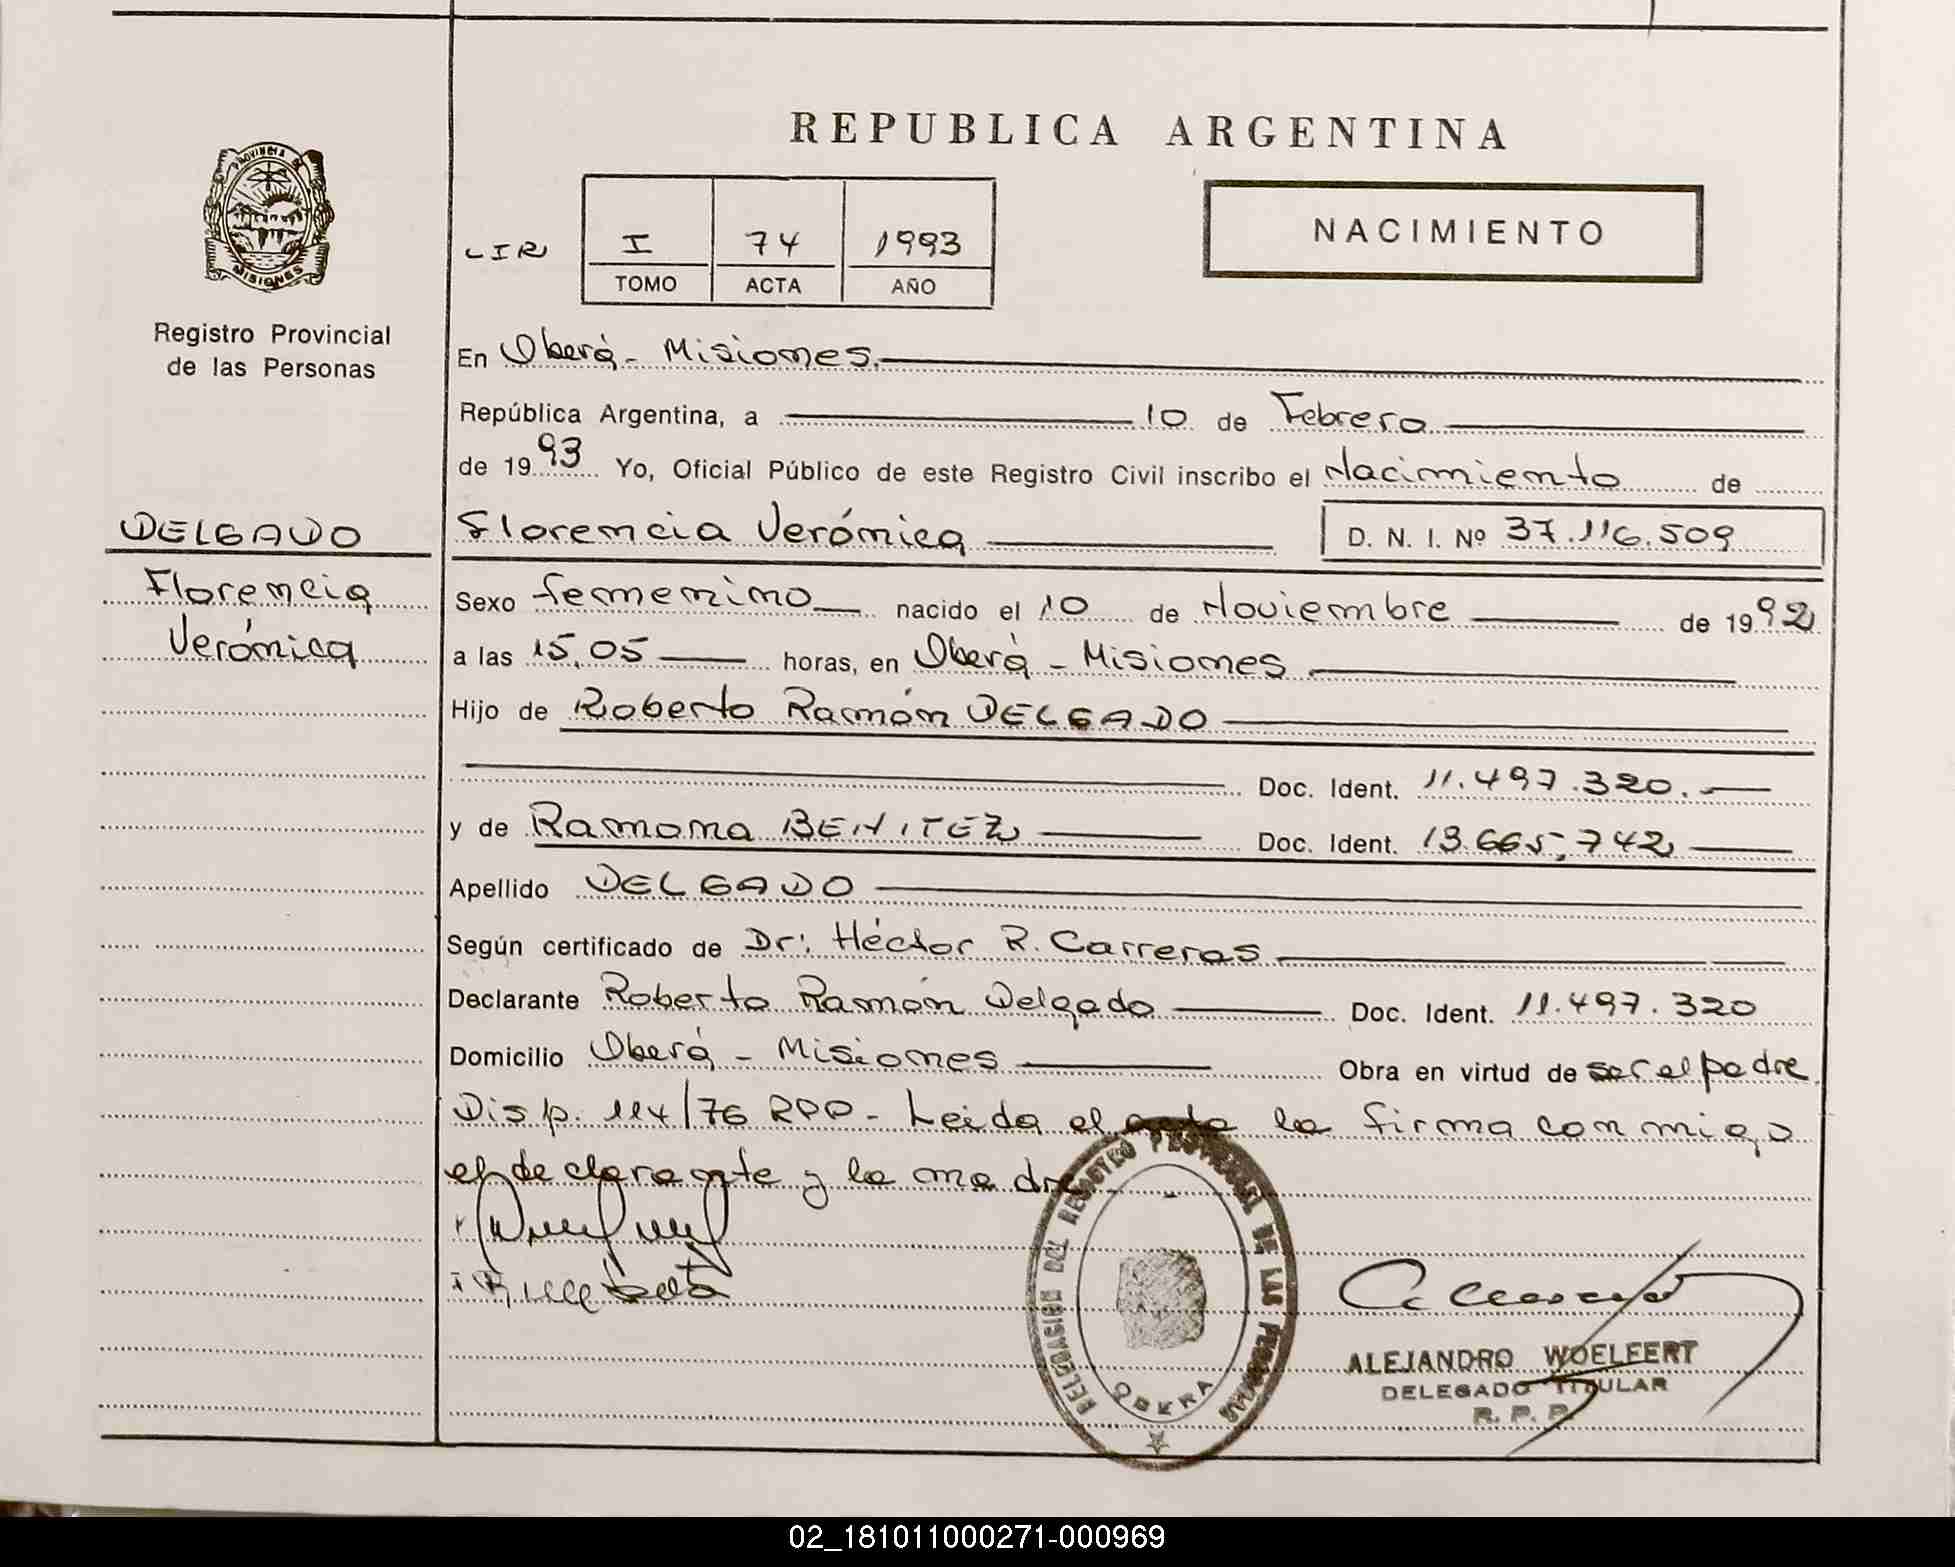 REPUBLICA ARGENTINA
PROVINCIA DE
MISIONES
Registro Provincial
de las Personas
LIR I 74 1993
TOMO ACTA AÑO
NACIMIENTO
En Oberá - Misiones.
República Argentina, a 10 de Febrero
de 1993 Yo, Oficial Público de este Registro Civil inscribo el Nacimiento de
DELGADO
Florencia
Verónica
Florencia Verónica D. N. I. Nº 37.116.509
Sexo femenino nacido el 10 de Noviembre de 1992
a las 15,05 horas, en Oberá - Misiones
Hijo de Roberto Ramón DELGADO
Doc. Ident. 11.497.320.
y de Ramona BENITEZ Doc. Ident. 13.665.742
Apellido DELGADO
Según certificado de Dr: Héctor R. Carreras
Declarante Roberto Ramón Delgado Doc. Ident. 11.497.320
Domicilio Oberá - Misiones Obra en virtud de ser el padre
Disp. 114/76 RPP - Leida el acta la firma conmigo
el declarante y la madre
DELEGACION DEL REGISTRO PROVINCIAL DE LAS PERSONAS
OBERA
ALEJANDRO WOELFERT
DELEGADO TITULAR
R. P. P.
02_181011000271-000969